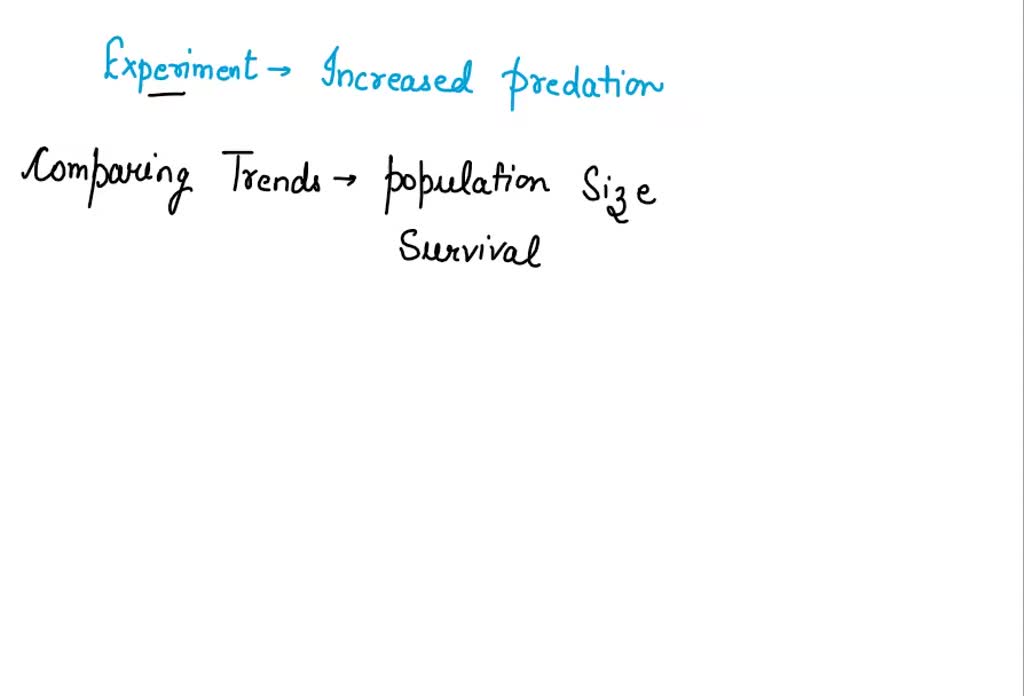 Experiment → Increased predation
Comparing Trends → population Size
Survival